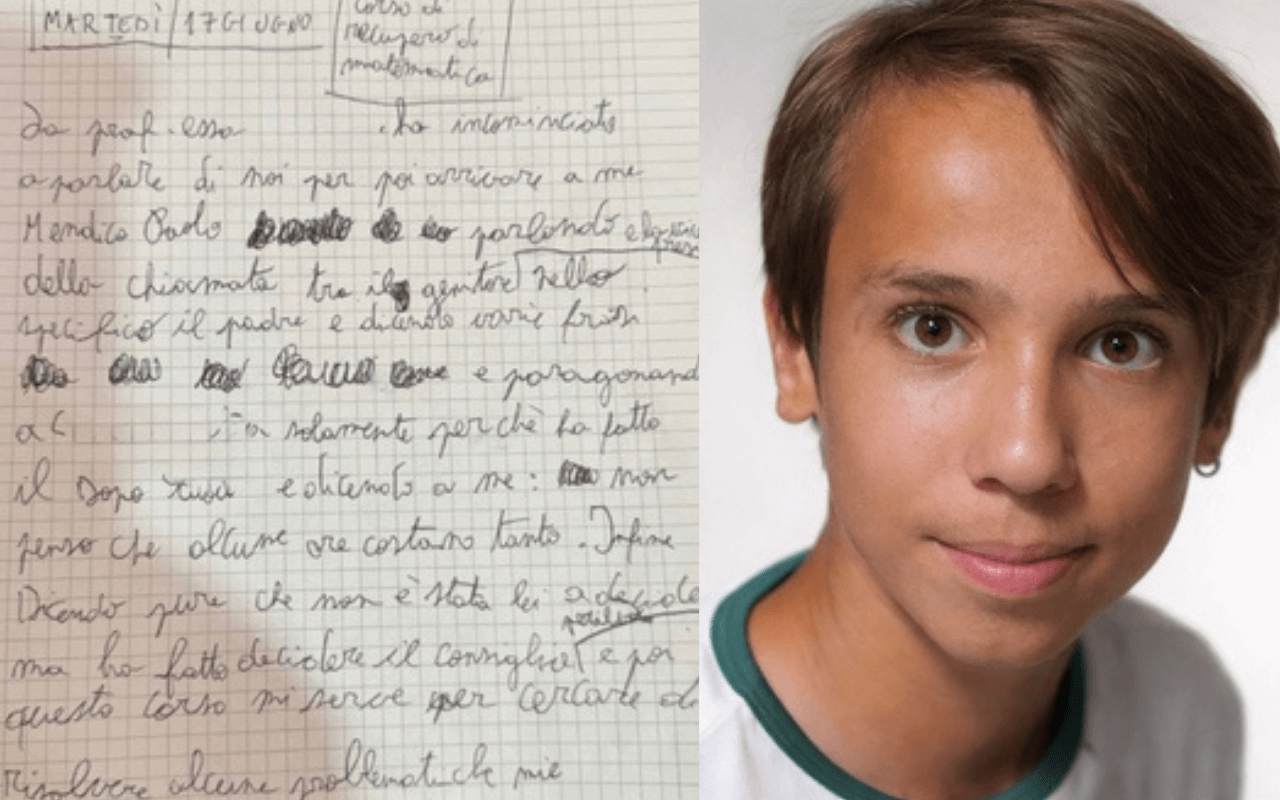 MARTEDÌ 17 GIUGNO
corso di
recupero di
matematica
La prof.essa ha incominciato
a parlare di noi per poi arrivare a me
Mendico Paolo parlando
della chiamata tra il genitore nello
specifico il padre e dicendo varie frasi
e paragonand
a C solamente perchè ha fatto
il Dopo scuola e dicendo a me: non
penso che alcune ore costano tanto. Infine
Dicendo pure che non è stata lei a decide
ma ha fatto decidere il consiglio e poi
questo corso mi serve per cercare di
risolvere alcune problematiche mie